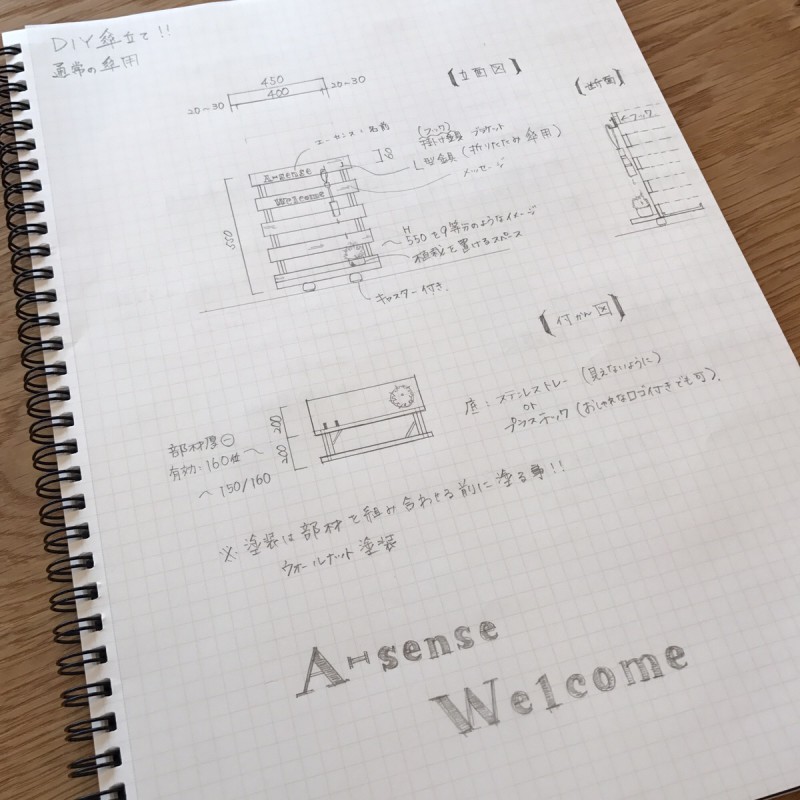 DIY傘立て!!
通常の傘用
450
400
20~30
20~30
【立面図】
【断面】
エーセンス:名前
(フック)
掛け金具 ブラケット
L型金具(折りたたみ傘用)
メッセージ
フック
50
A-sense
Welcome
550
H
550を9等分のようなイメージ
植栽を置けるスペース
キャスター付き.
【付かん図】
底:ステンレストレー(見えないように)
or
プラスチック(おしゃれなロゴ付きでも可).
200
200
部材厚⊖
有効:160位
150/160
※塗装は部材を組み合わせる前に塗る事!!
ウォールナット塗装
A-sense
Welcome